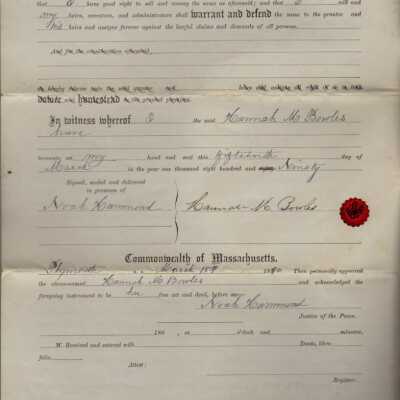 that I have good right to sell and convey the same as aforesaid; and that I will and
my heirs, executors, and administrators shall warrant and defend the same to the grantee and
his heirs and assigns forever against the lawful claims and demands of all persons.
And for the consideration aforesaid,
do hereby release unto the said grantee and
dower and homestead in the granted premises.
In witness whereof I the said Hannah M Bowles
have
hereunto set my hand and seal this fifteenth day of
March in the year one thousand eight hundred and Ninety
Signed, sealed and delivered
in presence of
Noah Hammond Hannah M Bowles
Commonwealth of Massachusetts.
Plymouth ss. March 15th 1890 Then personally appeared
the abovenamed Hannah M Bowles and acknowledged the
foregoing instrument to be her free act and deed, before me
Noah Hammond
Justice of the Peace.
188 , at o'clock and minutes,
M. Received and entered with Deeds, libro
folio
Attest:
Register.